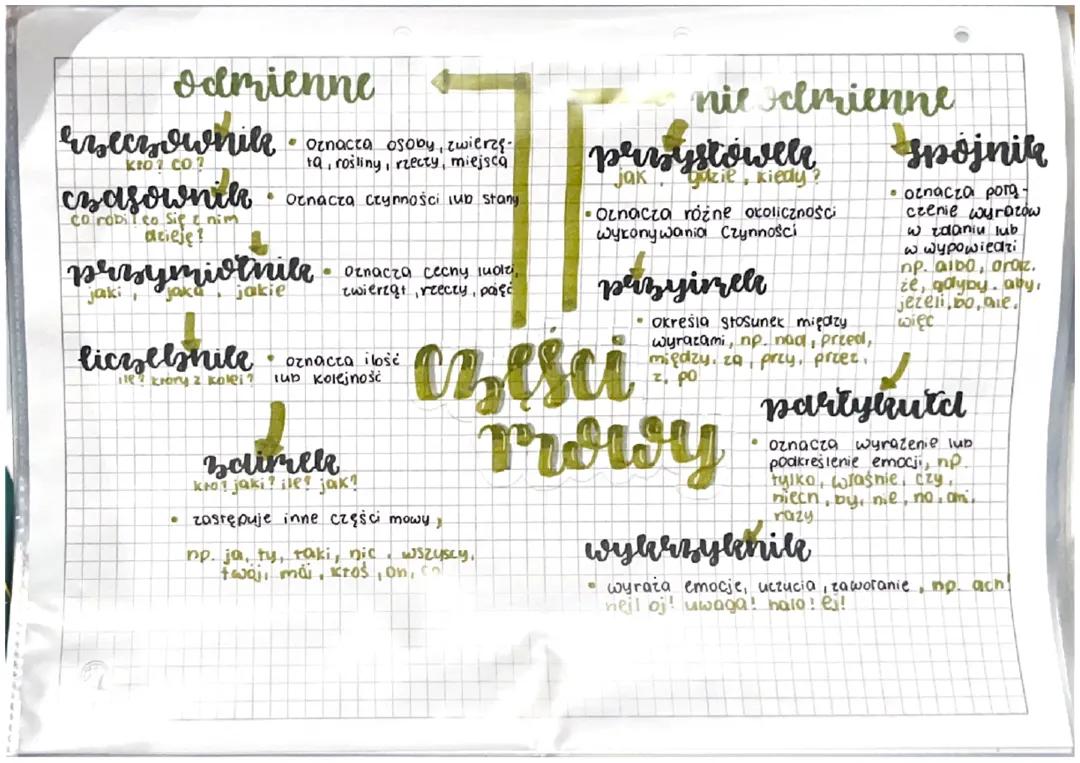 odmienne
rzeczownik
kto? co?
• oznacza osoby, zwierzę-
ta, rośliny, rzeczy, miejsca
czasownik
co robi? co się z nim
dzieję?
• oznacza czynności lub stany
przymiotnik
jaki, jaka, jakie
• oznacza cechy ludzi,
zwierząt, rzeczy, pojęć
liczebnik
ile? który z kolei?
• oznacza ilość
lub kolejność
zaimek
kto? jaki? ile? jak?
• zastępuje inne części mowy,
np. ja, ty, taki, nic, wszyscy,
twój, mój, ktoś, on, co
części
mowy
nieodmienne
przysłówek
jak, gdzie, kiedy?
• oznacza różne okoliczności
wykonywania czynności
przyimek
• określa stosunek między
wyrazami, np. nad, przed,
między, za, przy, przez,
z, po
spójnik
• oznacza połą-
czenie wyrazów
w zdaniu lub
w wypowiedzi
np. albo, oraz,
że, gdyby, aby,
jeżeli, bo, ale,
więc
partykuła
• oznacza wyrażenie lub
podkreślenie emocji, np.
tylko, właśnie, czy,
niech, by, nie, no, oni,
razy
wykrzyknik
• wyraża emocje, uczucia, zawołanie, np. ach!
hej! oj! uwaga! halo! ej!